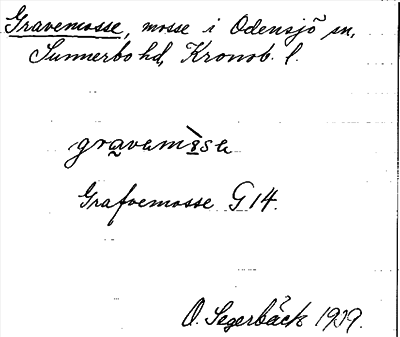 Gravemosse, mosse i Odensjö sn,
Sunnerbo hd, Kronob. l.
Grafvemosse G 14.
O. Segerbäck 1919.